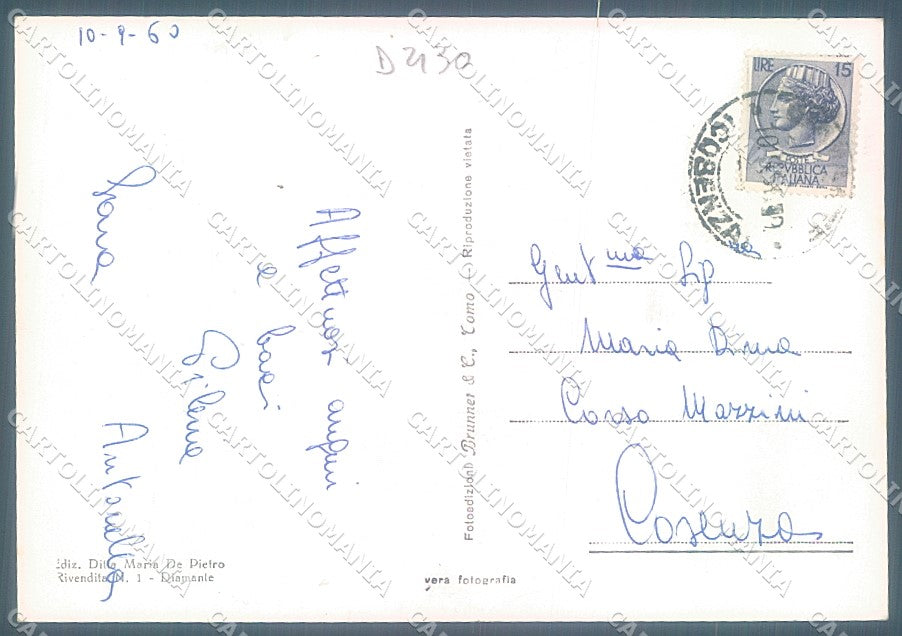 10-9-60
D 2130
LIRE 15
POSTE
REPVBBLICA
ITALIANA
COSENZA
Affettuosi auguri
e baci
Gilena
Sara
Antonella
Fotoedizioni Brunner & C., Como — Riproduzione vietata
Gent.ma Sig.na
Maria
Corso Mazzini
Cosenza
Ediz. Ditta Maria De Pietro
Rivendita N. 1 - Diamante
vera fotografia
CARTOLINOMANIA